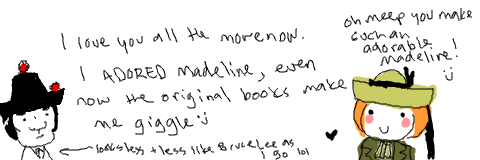 I love you all the more now.
I ADORED Madeline, even
now the original books make
me giggle :)
looks less + less like Bruce Lee as
I go lol
oh meep you make
such an
adorable
madeline!
:)